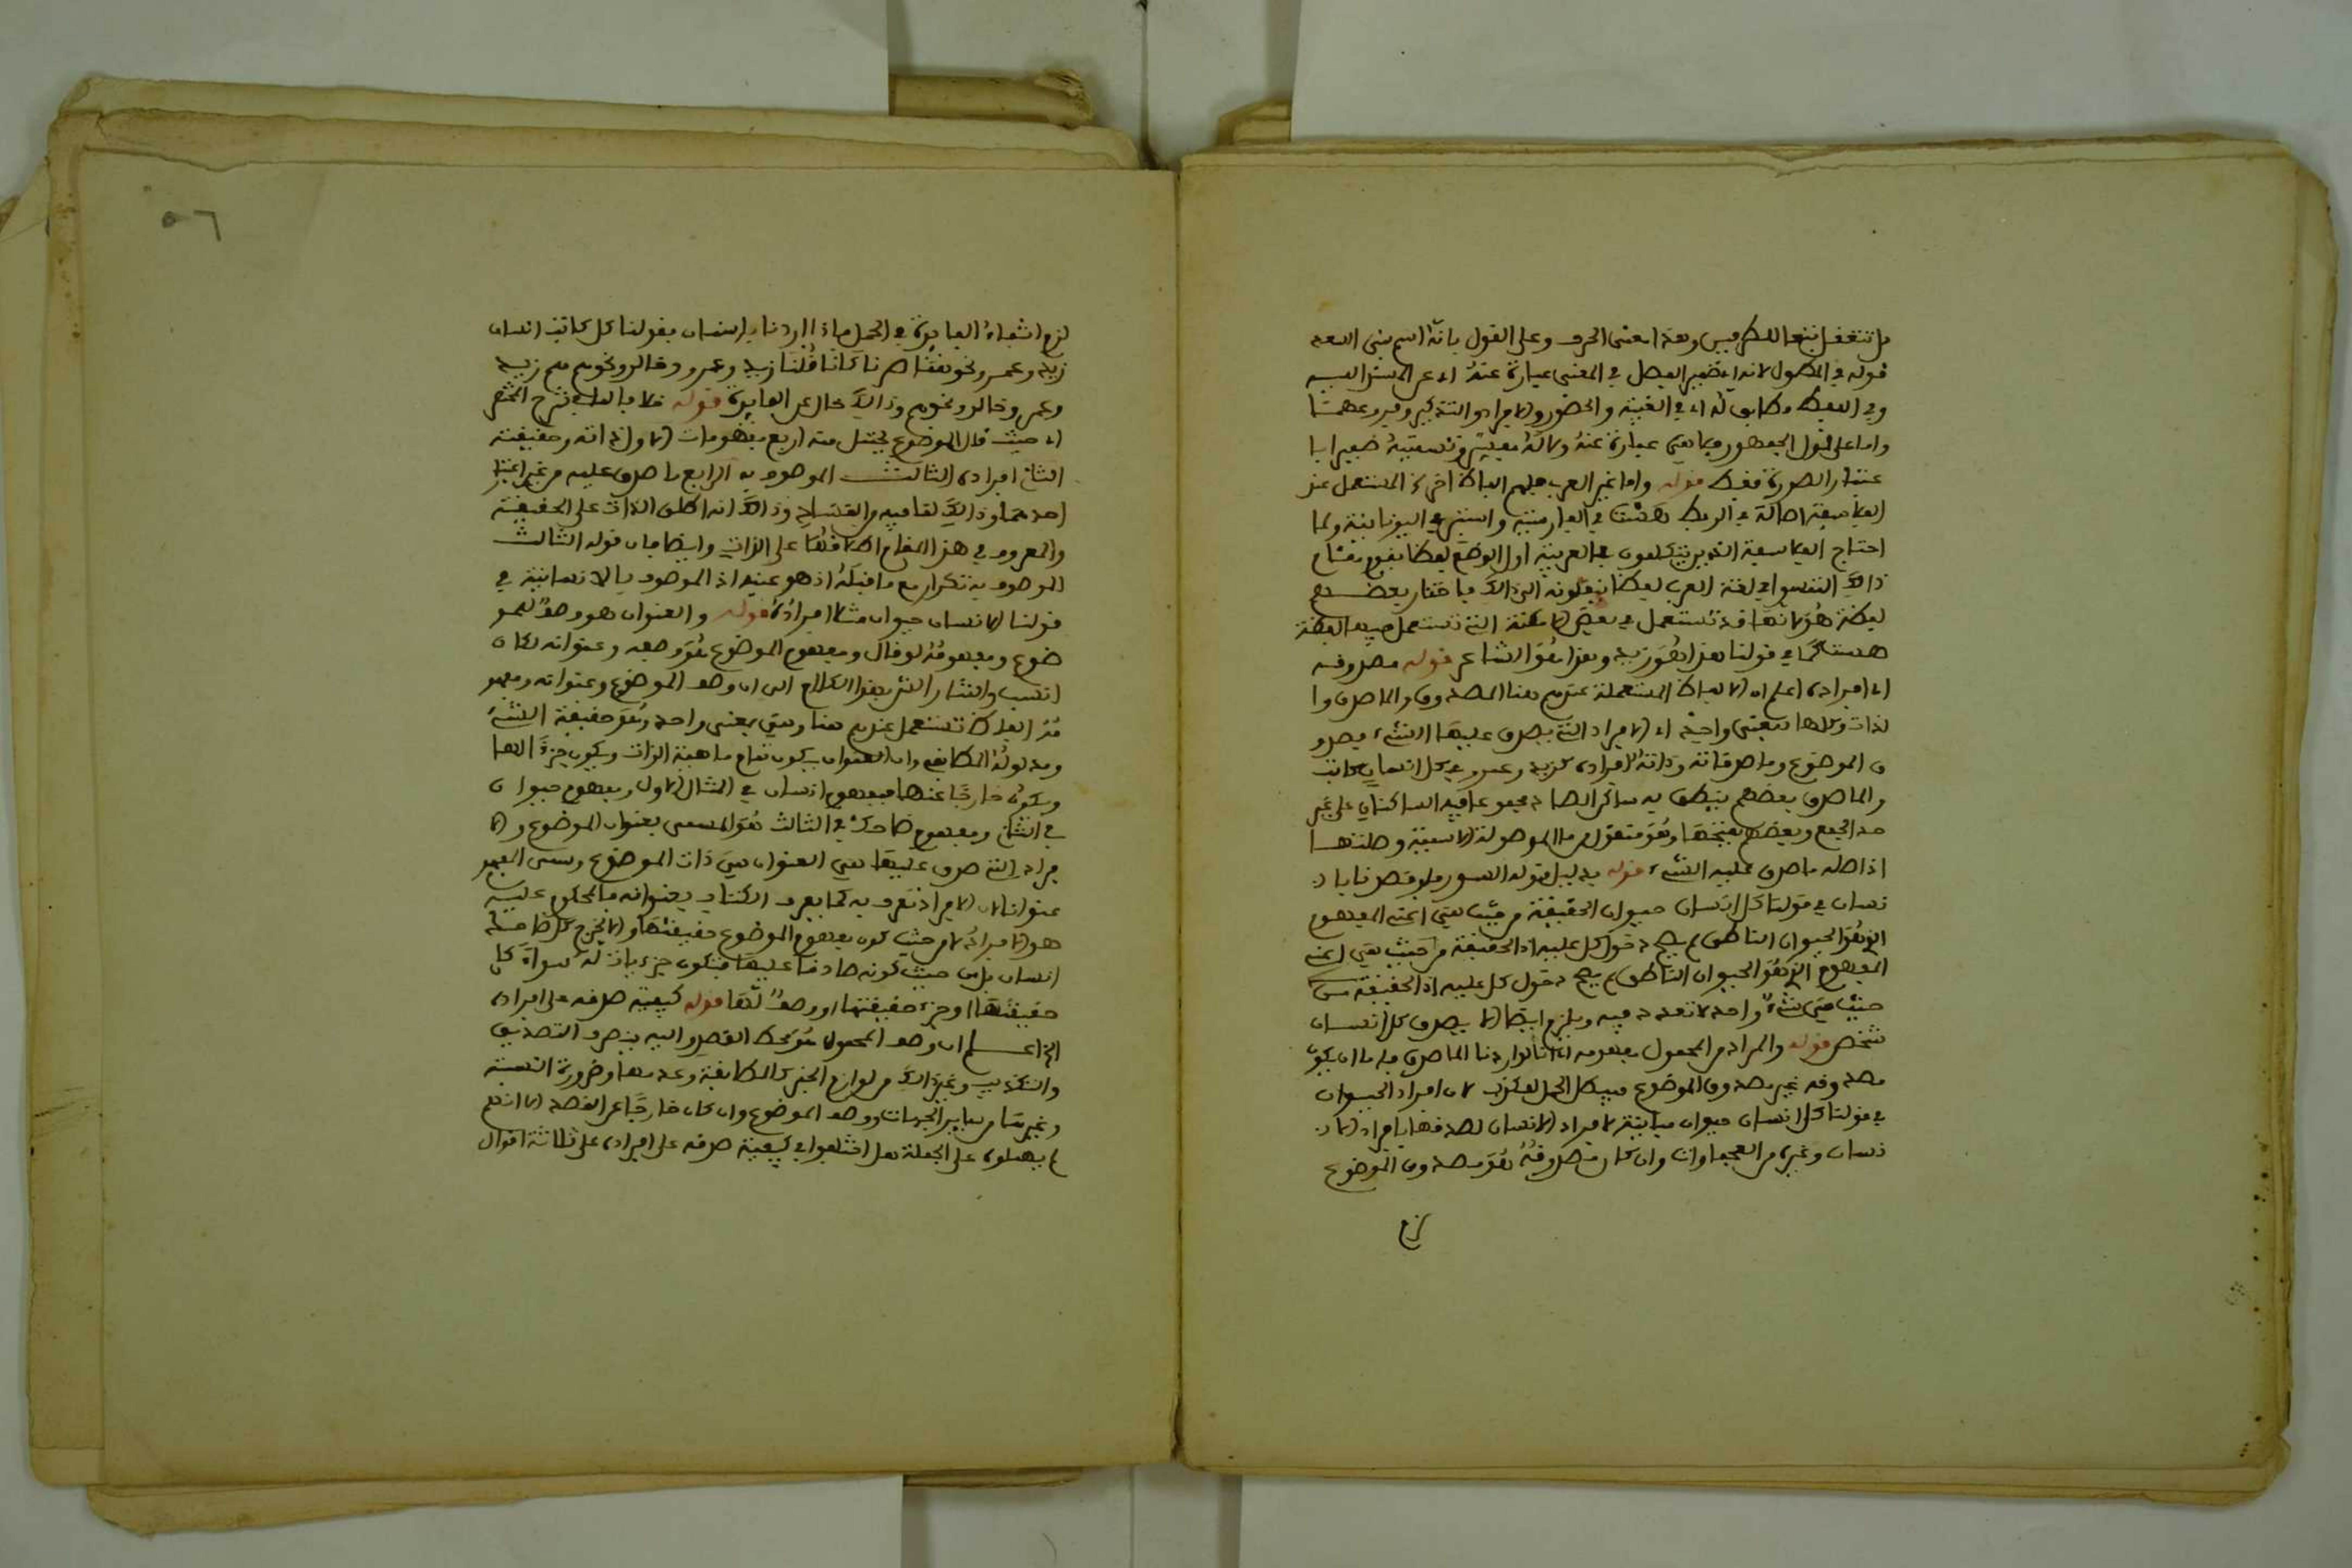 بل تتعقل تبعا للطرفين وهذا معنى الحرف وعلى القول بانه اسم يبنى البعد
قوله في المطول لانه اي ضمير الفصل في المعنى عبارة عنه اي عن المسند اليه
وفي اللفظ مطابق له اي في الغيبة والحضور والافراد والتذكير وفروعهما
واما على قول الجمهور فيما هي عبارة عنه ودلالة معينة وتسميته ضميرا با
عتبار الصورة فقط قوله واما غير العرب فلهم الفاظ اخر كالمستعمل عند
الفلاسفة اصالة في الربط هست في الفارسية واستين في اليونانية ولما
احتاج الفلاسفة الذين يتكلمون بالعربية اول الوضع لفظا يقوم مقام
ذالك التمسوا في لغة العرب لفظا ينقلونه الى ذالك فاختار بعضهم
لفظة هو لانها قد تستعمل في بعض الامكنة التي تستعمل فيها لفظة
هست كما في قولنا هذا هو زيد وهذا هو الشاعر قوله مصدوقه
اي افراده اعلم ان الالفاظ المستعملة عندهم هنا المصدوق والماصدق وا
لذات وكلها بمعنى واحد اي الافراد التي يصدق عليها الشيء فمصدو
ق الموضوع وما صدقاته وذاته لافراده كزيد وعمرو في كل انسان كاتب
والماصدق بعضهم ينطق به ساكن الصاد مجموعا فيه الساكنان على غير
حد الجمع وبعضهم بفتحها وهو منقول من ما الموصولة الاسمية وصلتها
اذ اصله ما صدق عليه الشيء قوله بدليل قوله السور فلو قصرنا بالا
نسان في قولنا كل انسان حيوان الحقيقة من حيث هي اعني المفهوم
الذي هو الحيوان الناطق لم يصح دخول كل عليه اذ الحقيقة من حيث هي اعني
المفهوم الذي هو الحيوان الناطق لم يصح دخول كل عليه اذ الحقيقة من
حيث هي شيء واحد لا تعدد فيه ويلزم ايضا الا يصدق كل انسان
شخص قوله والمراد من المحمول مفهومه اي لانا لو اردنا الماصدق فاما ان يكون
مصدوقه غير مصدوق الموضوع فيبطل الحمل لكذب لان افراد الحيوان
في قولنا كل انسان حيوان مباينة لافراد الانسان لصدقها بافراد الا
نسان وغيره من العجماوات وان كان مصدوقه هو مصدوق الموضوع
لزم
٥٦
لزم انتفاء الفائدة في الحمل فاذا اردنا بانسان بقولنا كل كاتب انسان
زيد وعمرو ونحوهما صرنا كانا قلنا زيد وعمرو وخالد ونحوهم هم زيد
وعمرو وخالد ونحوهم وذالك خال عن الفائدة قوله خلافا لما في شرح المختصر
اي حيث قال الموضوع يحتمل منه اربع مفهومات الاول ذاته وحقيقته
الثاني افراده الثالث الموصوف به الرابع ما صدق عليه من غير اعتبار
احدهما وذالك لما فيه من التسامح وذالك انه اطلق الذات على الحقيقة
والمعروف في هذا المقام اطلاقها على الذات وايضا فان قوله الثالث
الموصوف به تكرار مع ما قبله اذ هو عينه اذ الموصوف بالانسانية في
قولنا الانسان حيوان مثلا افراده قوله والعنوان هو وصف لمو
ضوع ومفهومه لو قال ومفهوم الموضوع هو وصفه وعنوانه لكان
انسب واشار الشارح بهذا الكلام الى ان وصف الموضوع وعنوانه ومفهو
مه الفاظ تستعمل عندهم هنا وهي بمعنى واحد وهو حقيقة الشيء
ومدلوله المطابقي وان العنوان يكون تمام ماهية الذات ويكون جزءا لها
ويكون خارجا عنها فمفهوم انسان في المثال الاول ومفهوم حيوان
في الثاني ومفهوم ضاحك في الثالث هو المسمى بعنوان الموضوع والا
فراد التي صدق عليها هي العنوان هي ذات الموضوع وسمي المفهو
عنوانا لان الافراد تعرف به كما يعرف الكتاب بعنوانه فالمحكوم عليه
هو الافراد لا من حيث كون مفهوم الموضوع حقيقتها والا لخرج كل ضاحك
انسان بل من حيث كونه صادقا عليها فتكون جزءياته له سواء كان
حقيقتها او جزء حقيقتها او وصفا لها قوله كيفية صدقه على افراده
الخ اعلم ان وصف المحمول هو محط القصد واليه ينصرف التصديق
والتكذيب وغير ذالك من لوازم الخبر كالمطابقة وعدمها وضرورة النسبة
وغيرها من سائر الجهات ووصف الموضوع وان كان خارجا عن القصد الا انهم
لم يهملوه على الجملة بل اختلفوا في كيفية صدقه على افراده على ثلاثة اقوال